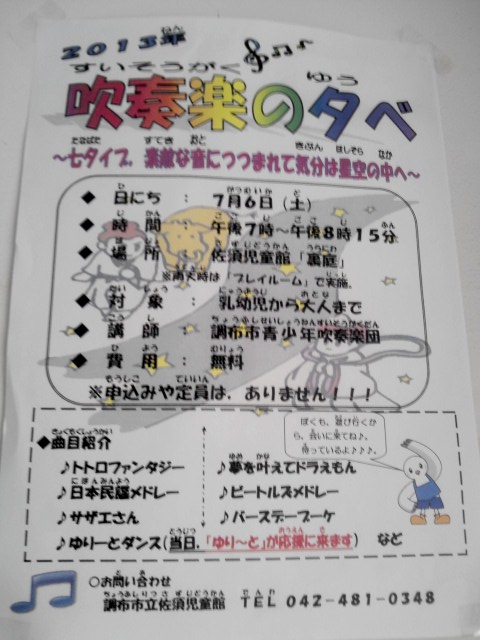 2013年
すいそうがく ゆう
吹奏楽の夕べ
たなばた すてき おと きぶん ほしぞら なか
〜七タイプ．素敵な音につつまれて気分は星空の中へ〜
◆ 日にち ： 7月6日（土）
◆ 時間 ： 午後7時〜午後8時15分
◆ 場所 ： 佐須児童館「裏庭」
※雨天時は「プレイルーム」で実施。
◆ 対象 ： 乳幼児から大人まで
◆ 講師 ： 調布市青少年吹奏楽団
◆ 費用 ： 無料
※申込みや定員は．ありません！！！
◆曲目紹介
♪トトロファンタジー ♪夢を叶えてドラえもん
♪日本民謡メドレー ♪ビートルズメドレー
♪サザエさん ♪バースデーブーケ
♪ゆりーとダンス（当日．「ゆり〜と」が応援に来ます） など
ぼくも、遊び行くか
ら、会いに来てね♪。
待っているよ♪♪♪。
○お問い合わせ
調布市立佐須児童館 TEL 042-481-0348